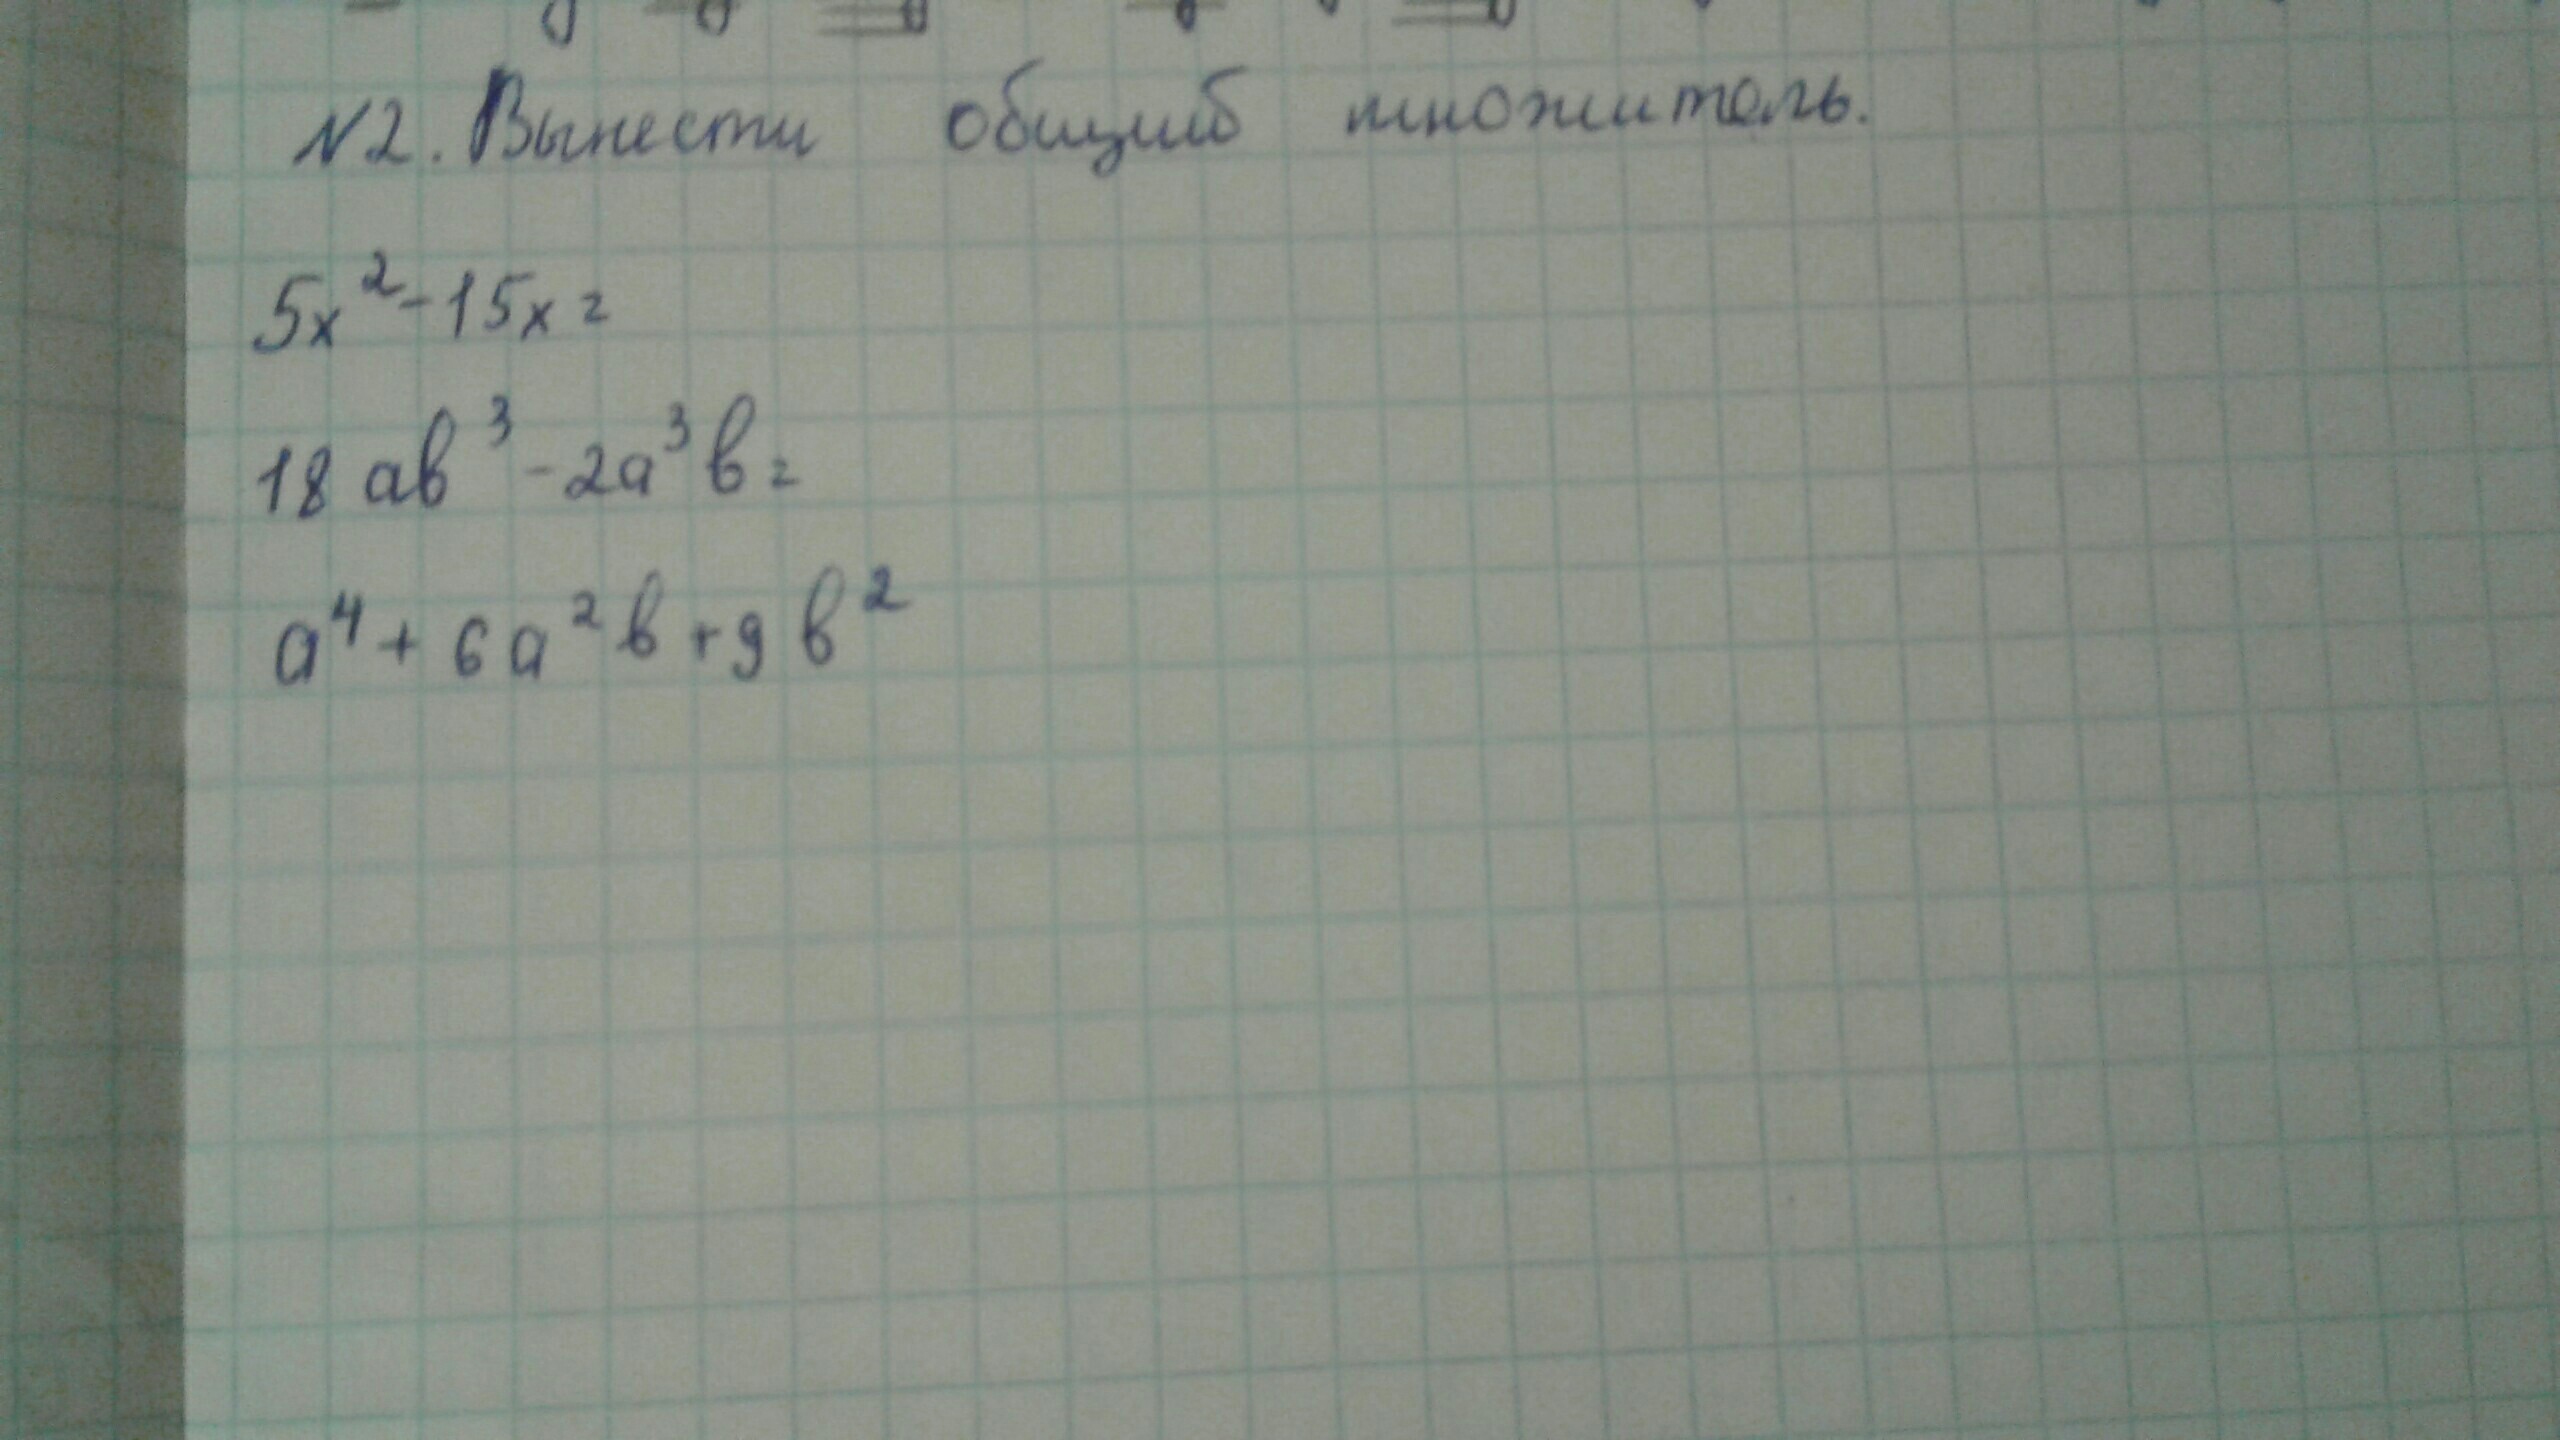 N2. Вынести общий множитель.
5x²-15x=
18ab³-2a³b=
a⁴+6a²b+9b²